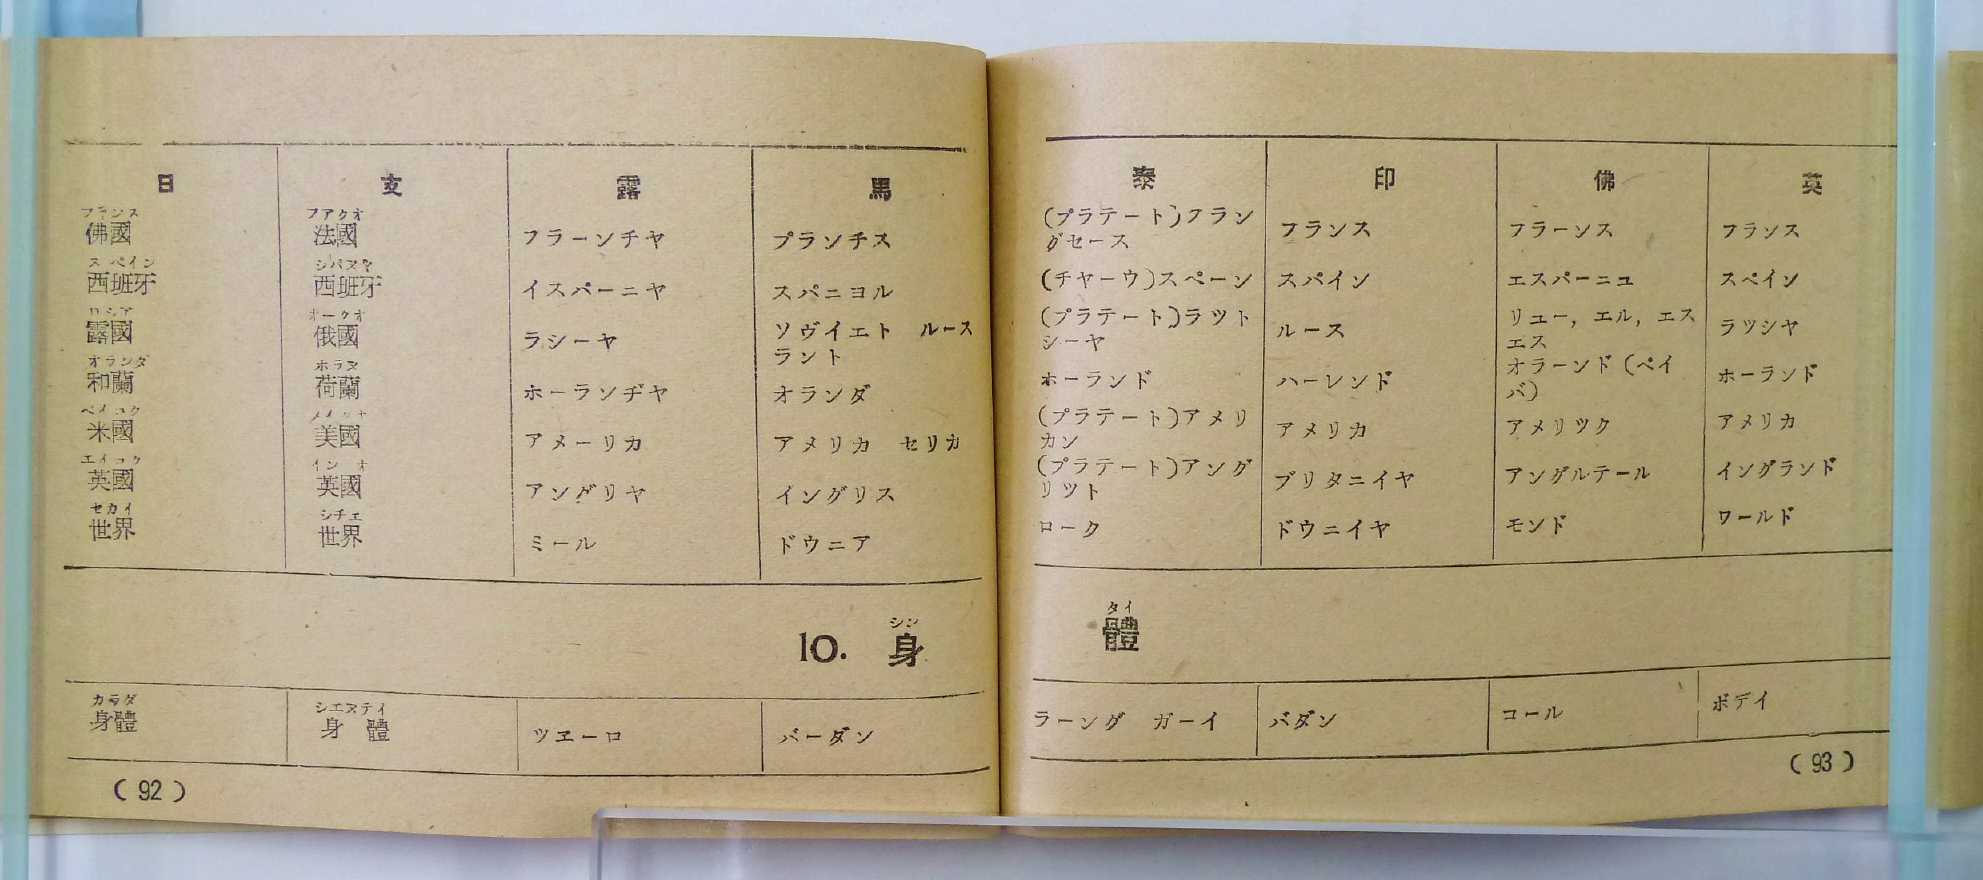 日	支	露	馬	泰	印	佛	英
フランス	フアクオ	(プラテート)フラン
佛國	法國	フラーンチヤ	プランチス	グセース	フランス	フラーンス	フランス
スペイン	シパヌヤ
西班牙	西班牙	イスパーニヤ	スパニヨル	(チヤーウ)スペーン	スパイン	エスパーニユ	スペイン
ロシア	オークオ	ソヴイエト　ルース	(プラテート)ラツト	リユー, エル, エス
露國	俄國	ラシーヤ	ラント	シーヤ	ルース	エス	ラツシヤ
オランダ	ホラヌ	オラーンド (ペイ
和蘭	荷蘭	ホーランヂヤ	オランダ	ホーランド	ハーレンド	バ)	ホーランド
ベイコク	(プラテート)アメリ
米國	美國	アメーリカ	アメリカ　セリカ	カン	アメリカ	アメリツク	アメリカ
エイコク	イン　オ	(プラテート)アング
英國	英國	アングリヤ	イングリス	リツト	ブリタニイヤ	アングルテール	イングランド
セカイ	シチエ
世界	世界	ミール	ドウニア	ローク	ドウニイヤ	モンド	ワールド
シン	タイ
10. 身	體
カラダ	シエヌテイ
身體	身　體	ツヱーロ	バーダン	ラーング　ガーイ	バダン	コール	ボデイ
( 92 )	( 93 )